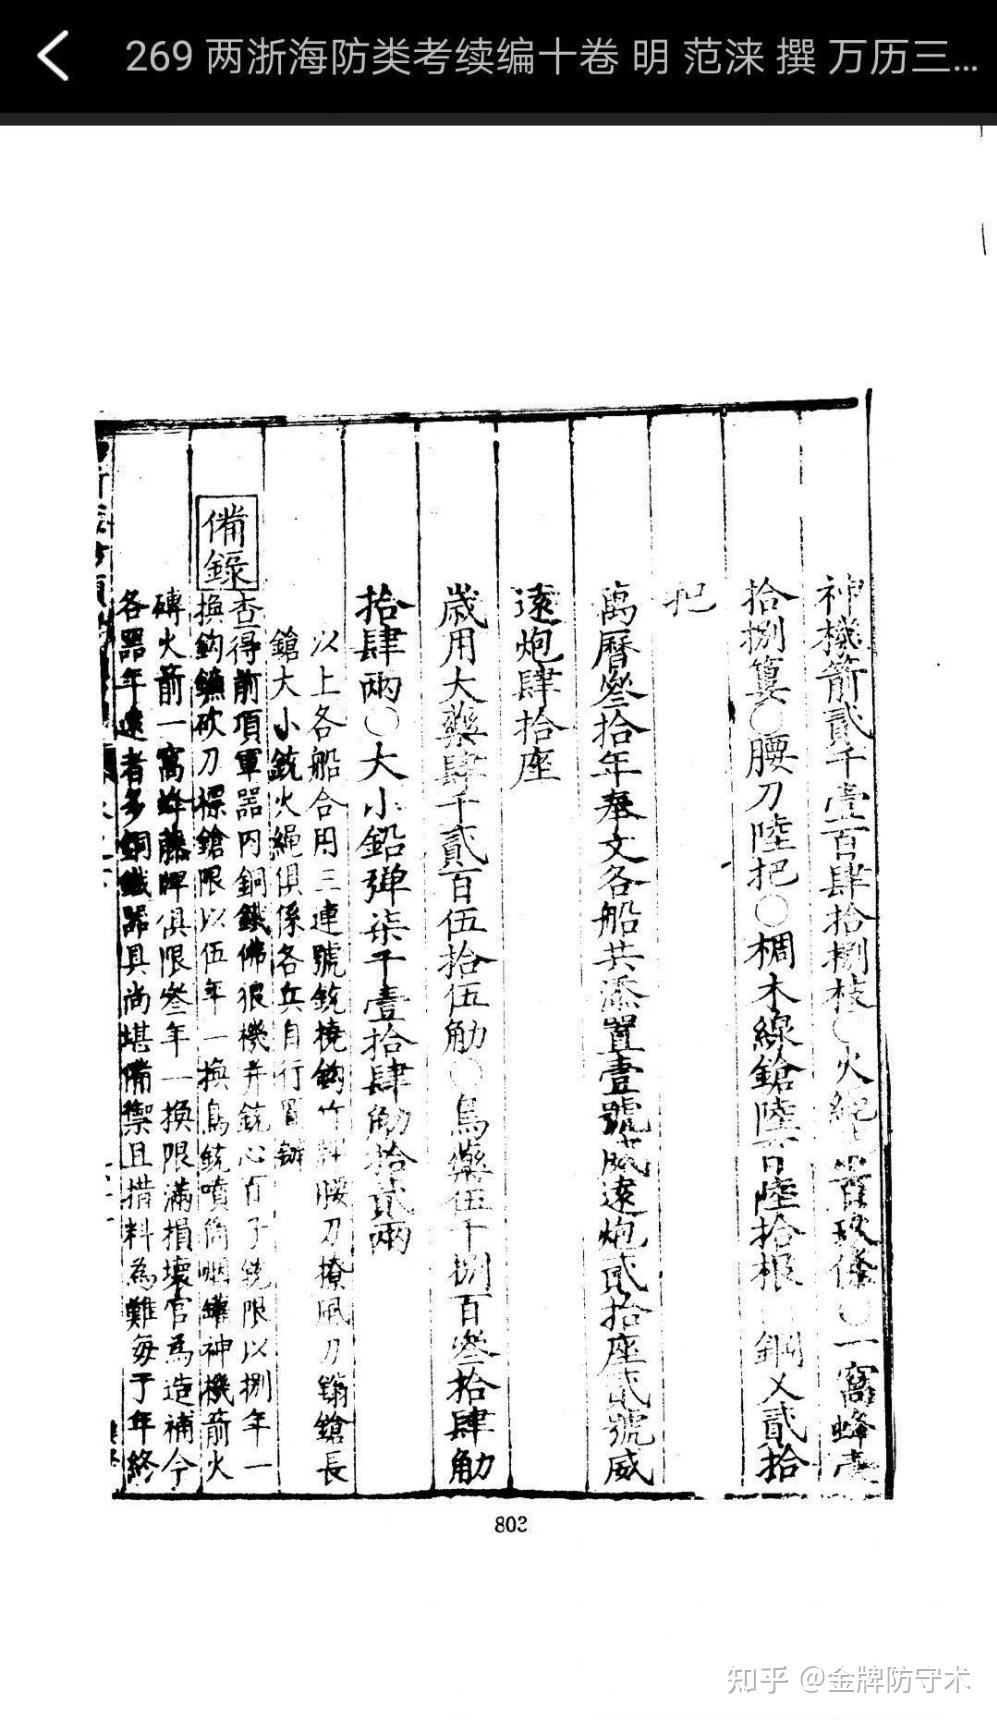 269 两浙海防类考续编十卷 明 范涞 撰 万历三...
神機箭貳千壹百肆拾捌枝○火繩 百 條○一窩蜂壹
拾捌簍○腰刀陸把○椆木線鎗陸百陸拾根 鋼叉貳拾
把
萬曆叄拾年奉文各船共添置壹號威遠炮貳拾座貳號威
遠炮肆拾座
歲用大藥肆千貳百伍拾伍觔○鳥藥伍千捌百叄拾肆觔
拾肆兩○大小鉛弹柒千壹拾肆觔拾貳兩
以上各船合用三連號銃撓鈎竹 腰刀撩風刀 鎗長
鎗大小銃火繩俱係各兵自行置辦
備錄
查得前項軍器内銅鐵佛狼機并銃心百子銃限以捌年一
換鈎鐮砍刀標鎗限以伍年一換鳥銃噴筒烟罐神機箭火
磚火箭一窩蜂藤牌俱限叄年一換限滿損壞官為造補今
各器年遠者多銅鐵器具尚堪備禦且措料為難每于年終
803
知乎 @金牌防守术